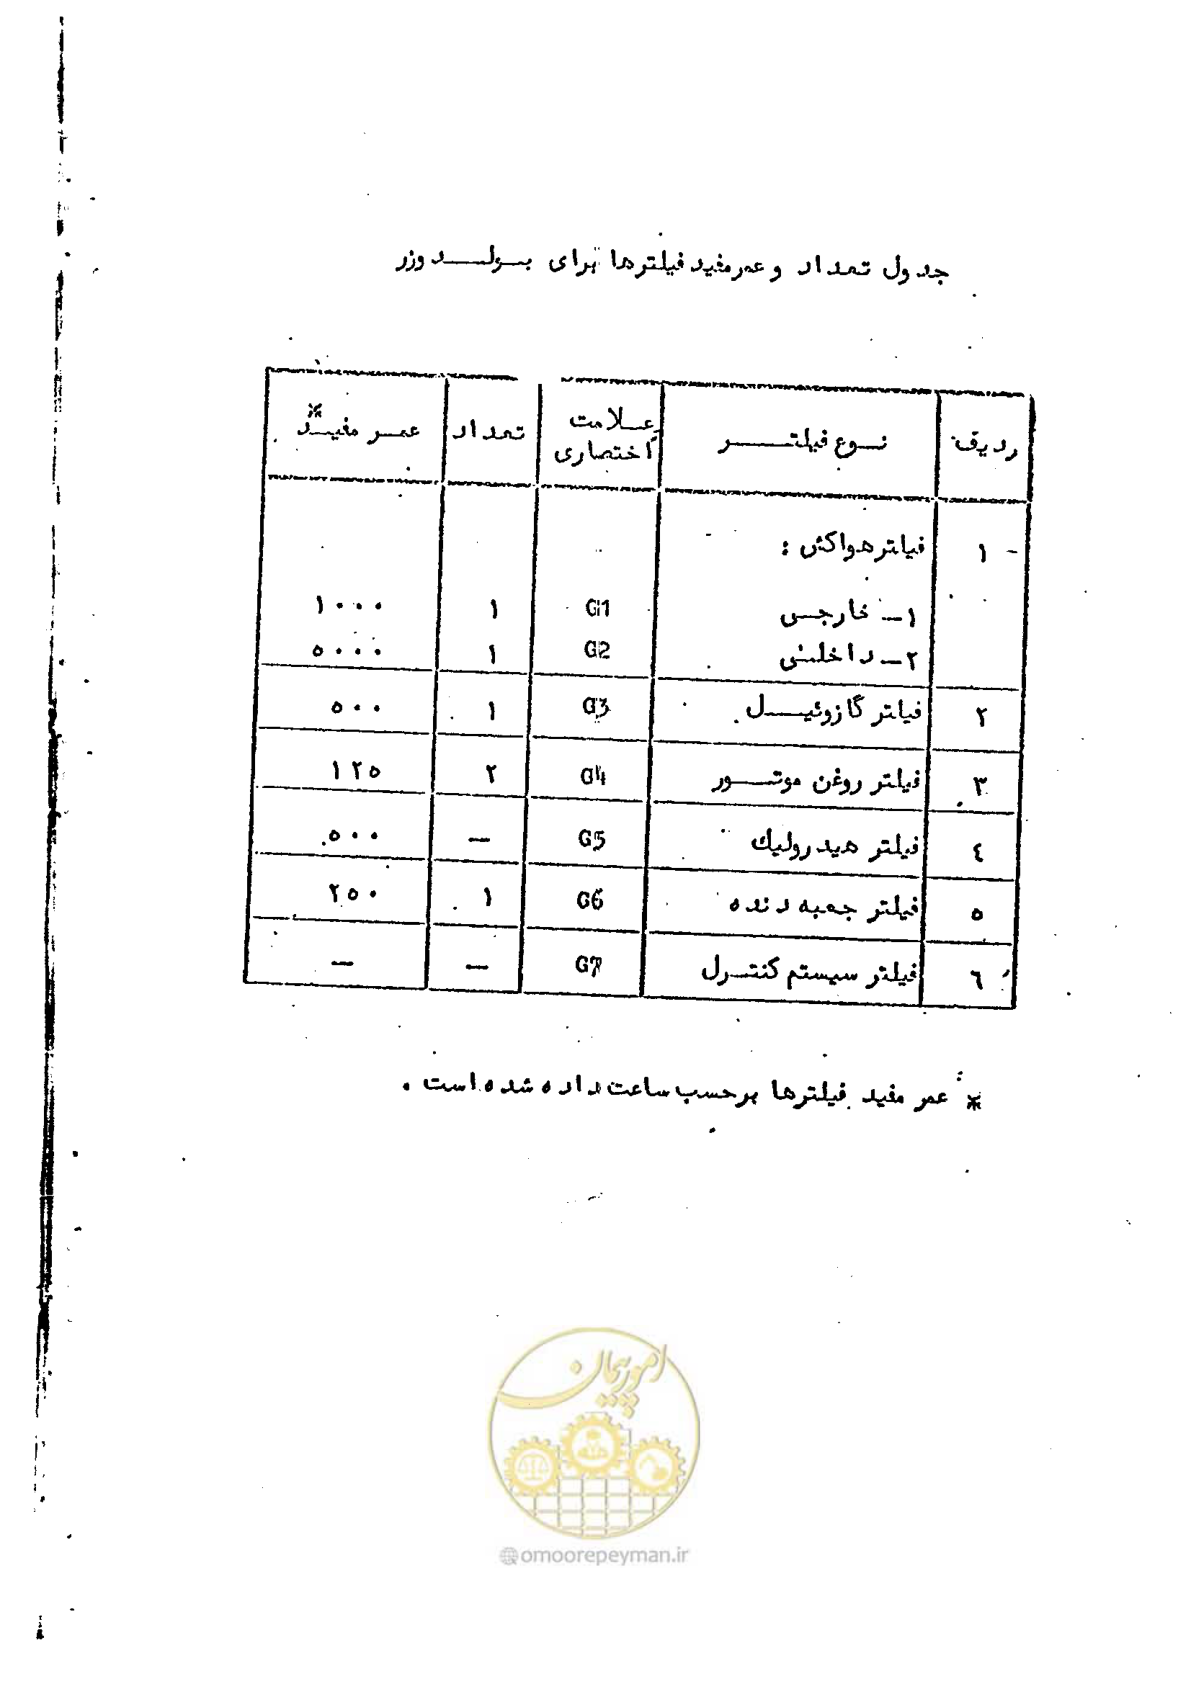 جدول تعداد و عمر مفید فیلترها برای بولدوزر
ردیف نوع فیلتر علامت اختصاری تعداد عمر مفید*
۱ فیلتر هواکش :
۱- خارجی G1 ۱ ۱۰۰۰
۲- داخلی G2 ۱ ۵۰۰۰
۲ فیلتر گازوئیل G3 ۱ ۵۰۰
۳ فیلتر روغن موتور G4 ۲ ۱۲۵
٤ فیلتر هیدرولیك G5 — ۵۰۰
۵ فیلتر جعبه دنده G6 ۱ ۲۵۰
٦ فیلتر سیستم کنترل G7 — —
* عمر مفید فیلترها برحسب ساعت داده شده است .
امور پیمان
@omoorepeyman.ir